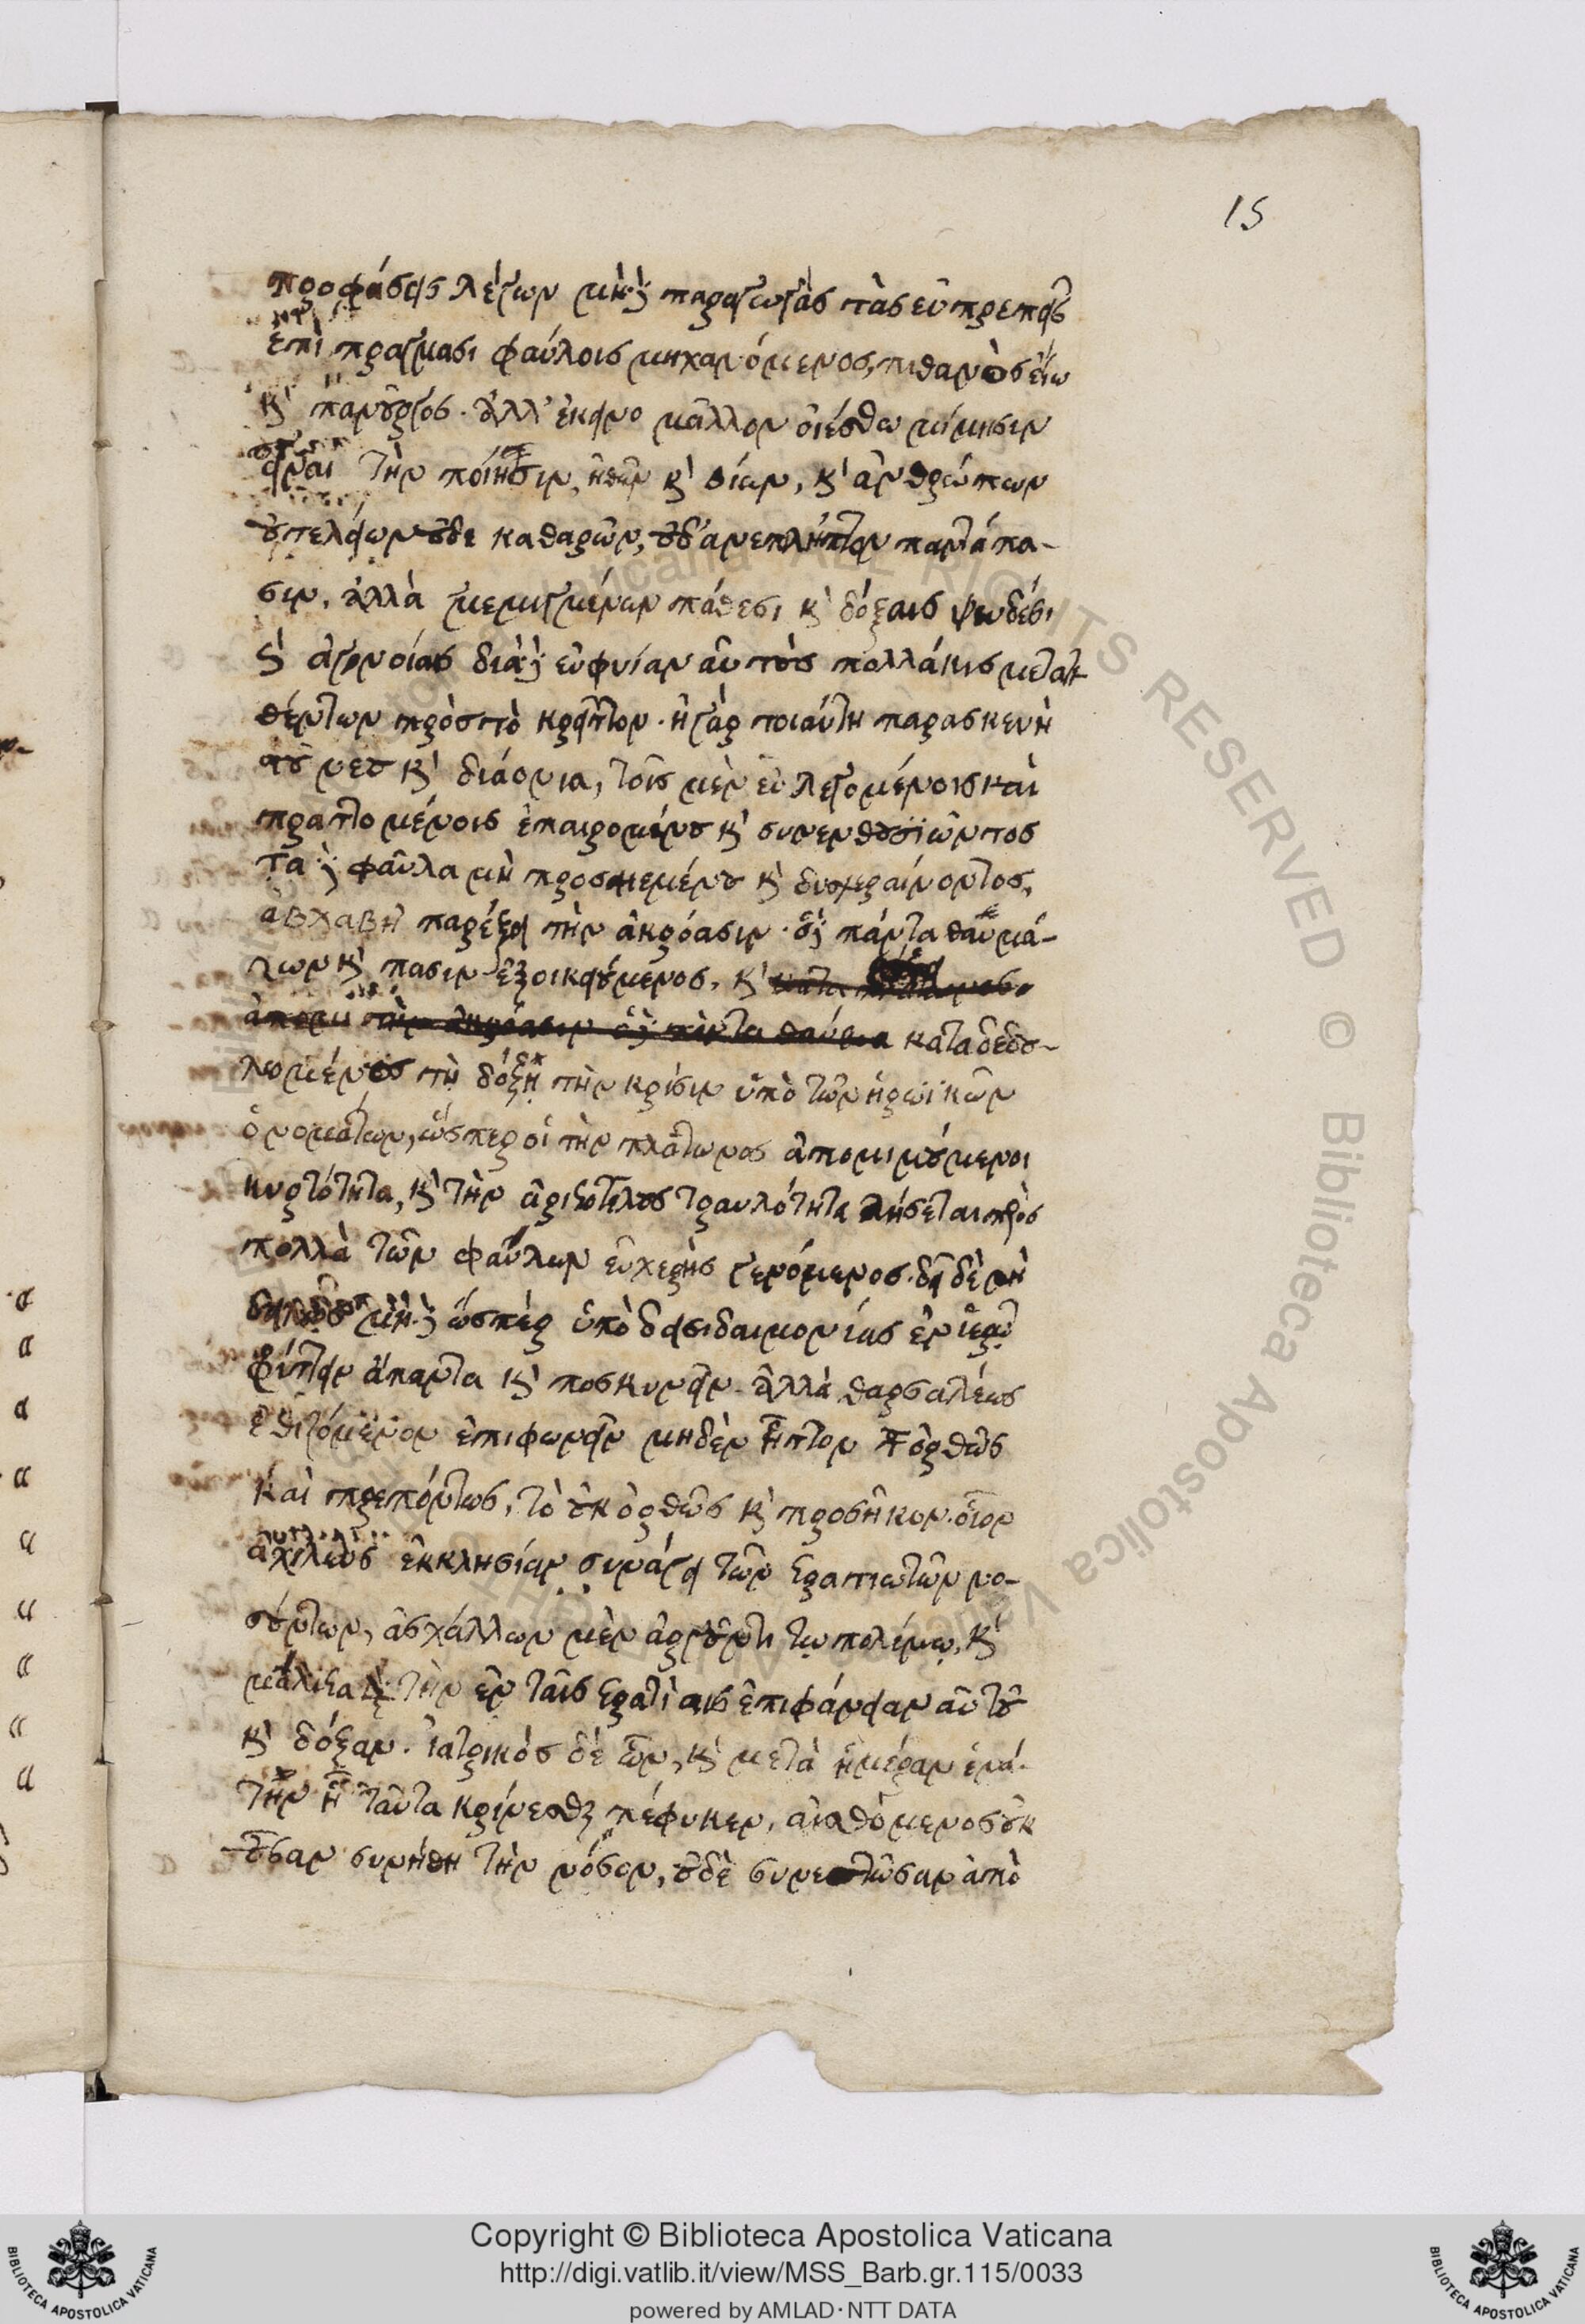 15
προφάσεις λέγων μηδὲ παραγωγὰς τὰς εὐπρεπεῖς
ἐπὶ πραγμασι φαύλοις μηχανόμενος, πιθανὸς εἴη
κ̀ πανοῦργος. ἀλλ' ἐκεῖνο μᾶλλον οἰέσθω μίμησιν
εἶναι τὴν ποίησιν, ἠθῶν κ̀ βίων, κ̀ ἀνθρώπων
οὐ τελείων οὐδε καθαρῶν, οὐδ' ἀνεπλήπτων παντάπα-
σιν, ἀλλὰ μεμιγμένων πάθεσι κ̀ δόξαις ψευδέσι
κ̀ ἀγνοίαις διὰ δὲ εὐφυίαν αὐτοὺς πολλάκις μετατι
θέντων πρὸς τὸ κρεῖττον. ἡ γὰρ τοιαύτη παρασκευὴ
τοῦ νεου κ̀ διάονια, τοῖς μὲν εὖ λεγομένοις καὶ
πραττομένοις ἐπαιρομένου κ̀ συνενθουσϊῶντος
τὰ δὲ φαῦλα μὴ προσιεμένου κ̀ δυσχεραίνοντος,
ἀβλαβῆ παρέξει τὴν ἀκρόασιν. ὁ δὲ πάντα θαυμά-
ζων κ̀ πασιν ἐξοικειούμενος, κ̀
καταδεδου-
λωμένος τῇ δόξῃ τὴν κρίσιν ὑπὸ τῶν ἡρωϊκῶν
ὀνομάτων, ὥσπερ οἱ τὴν πλάτωνος ἀπομιμούμενοι
κυρτότητα, κ̀ τὴν ἀριστοτέλους τραυλότητα λήσεται πρὸς
πολλὰ τῶν φαύλων εὐχερὴς γενόμενος. δεῖ δὲ μὴ
δειλῶς μηδὲ ὥσπερ ὑπὸ δεισιδαιμονίας ἐν ἱερῷ
φρίττειν ἅπαντα κ̀ ποσκυνεῖν. ἀλλὰ θαρσαλέως
ἐθιζόμενον ἐπιφωνεῖν μηδὲν ἧττον τοῦ ὀρθῶς
καὶ πρεπόντως, τὸ οὐκ ὀρθῶς κ̀ προσῆκον. οἷον
ἀχιλεὺς ἐκκλησίαν συνάγει τῶν στρατιωτῶν νο-
σούντων, ἀσχάλλων μὲν ἀργοῦντι τῳ πολέμῳ, κ̀
μάλιστα δὲ τὴν ἐν ταῖς στρατίαις ἐπιφάνειαν αὐτοῦ
κ̀ δόξαν. ἰατρικὸς δὲ ὢν, κ̀ μετὰ ἡμέραν ἐνά-
την ᾗ ταῦτα κρίνεσθαι πέφυκεν, αἰσθόμενος οὐκ
οὖσαν συνήθη τὴν νόσον, οὐδὲ συνεστῶσαν ἀπὸ
Copyright © Biblioteca Apostolica Vaticana
http://digi.vatlib.it/view/MSS_Barb.gr.115/0033
powered by AMLAD·NTT DATA